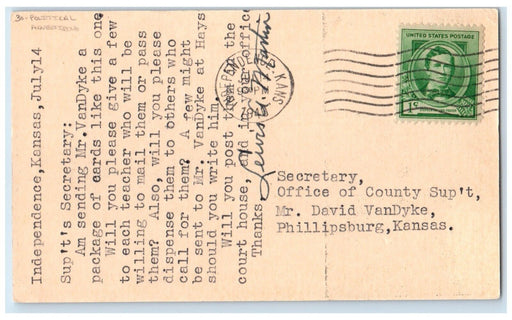 30-POLITICAL
Independence,Kansas,July14
Sup't's Secretary:
Am sending Mr.VanDyke a
package of cards like this one
Will you please give a few
to each teacher who will be
willing to mail them or pass
them? Also, will you please
dispense them to others who
call for them? A few might
be sent to Mr. VanDyke at Hays
should you write him.
Will you post them in the
court house, and in your office
Thanks.
INDEPENDENCE KANS
UNITED STATES POSTAGE
1¢
Secretary,
Office of County Sup't,
Mr. David VanDyke,
Phillipsburg,Kansas.